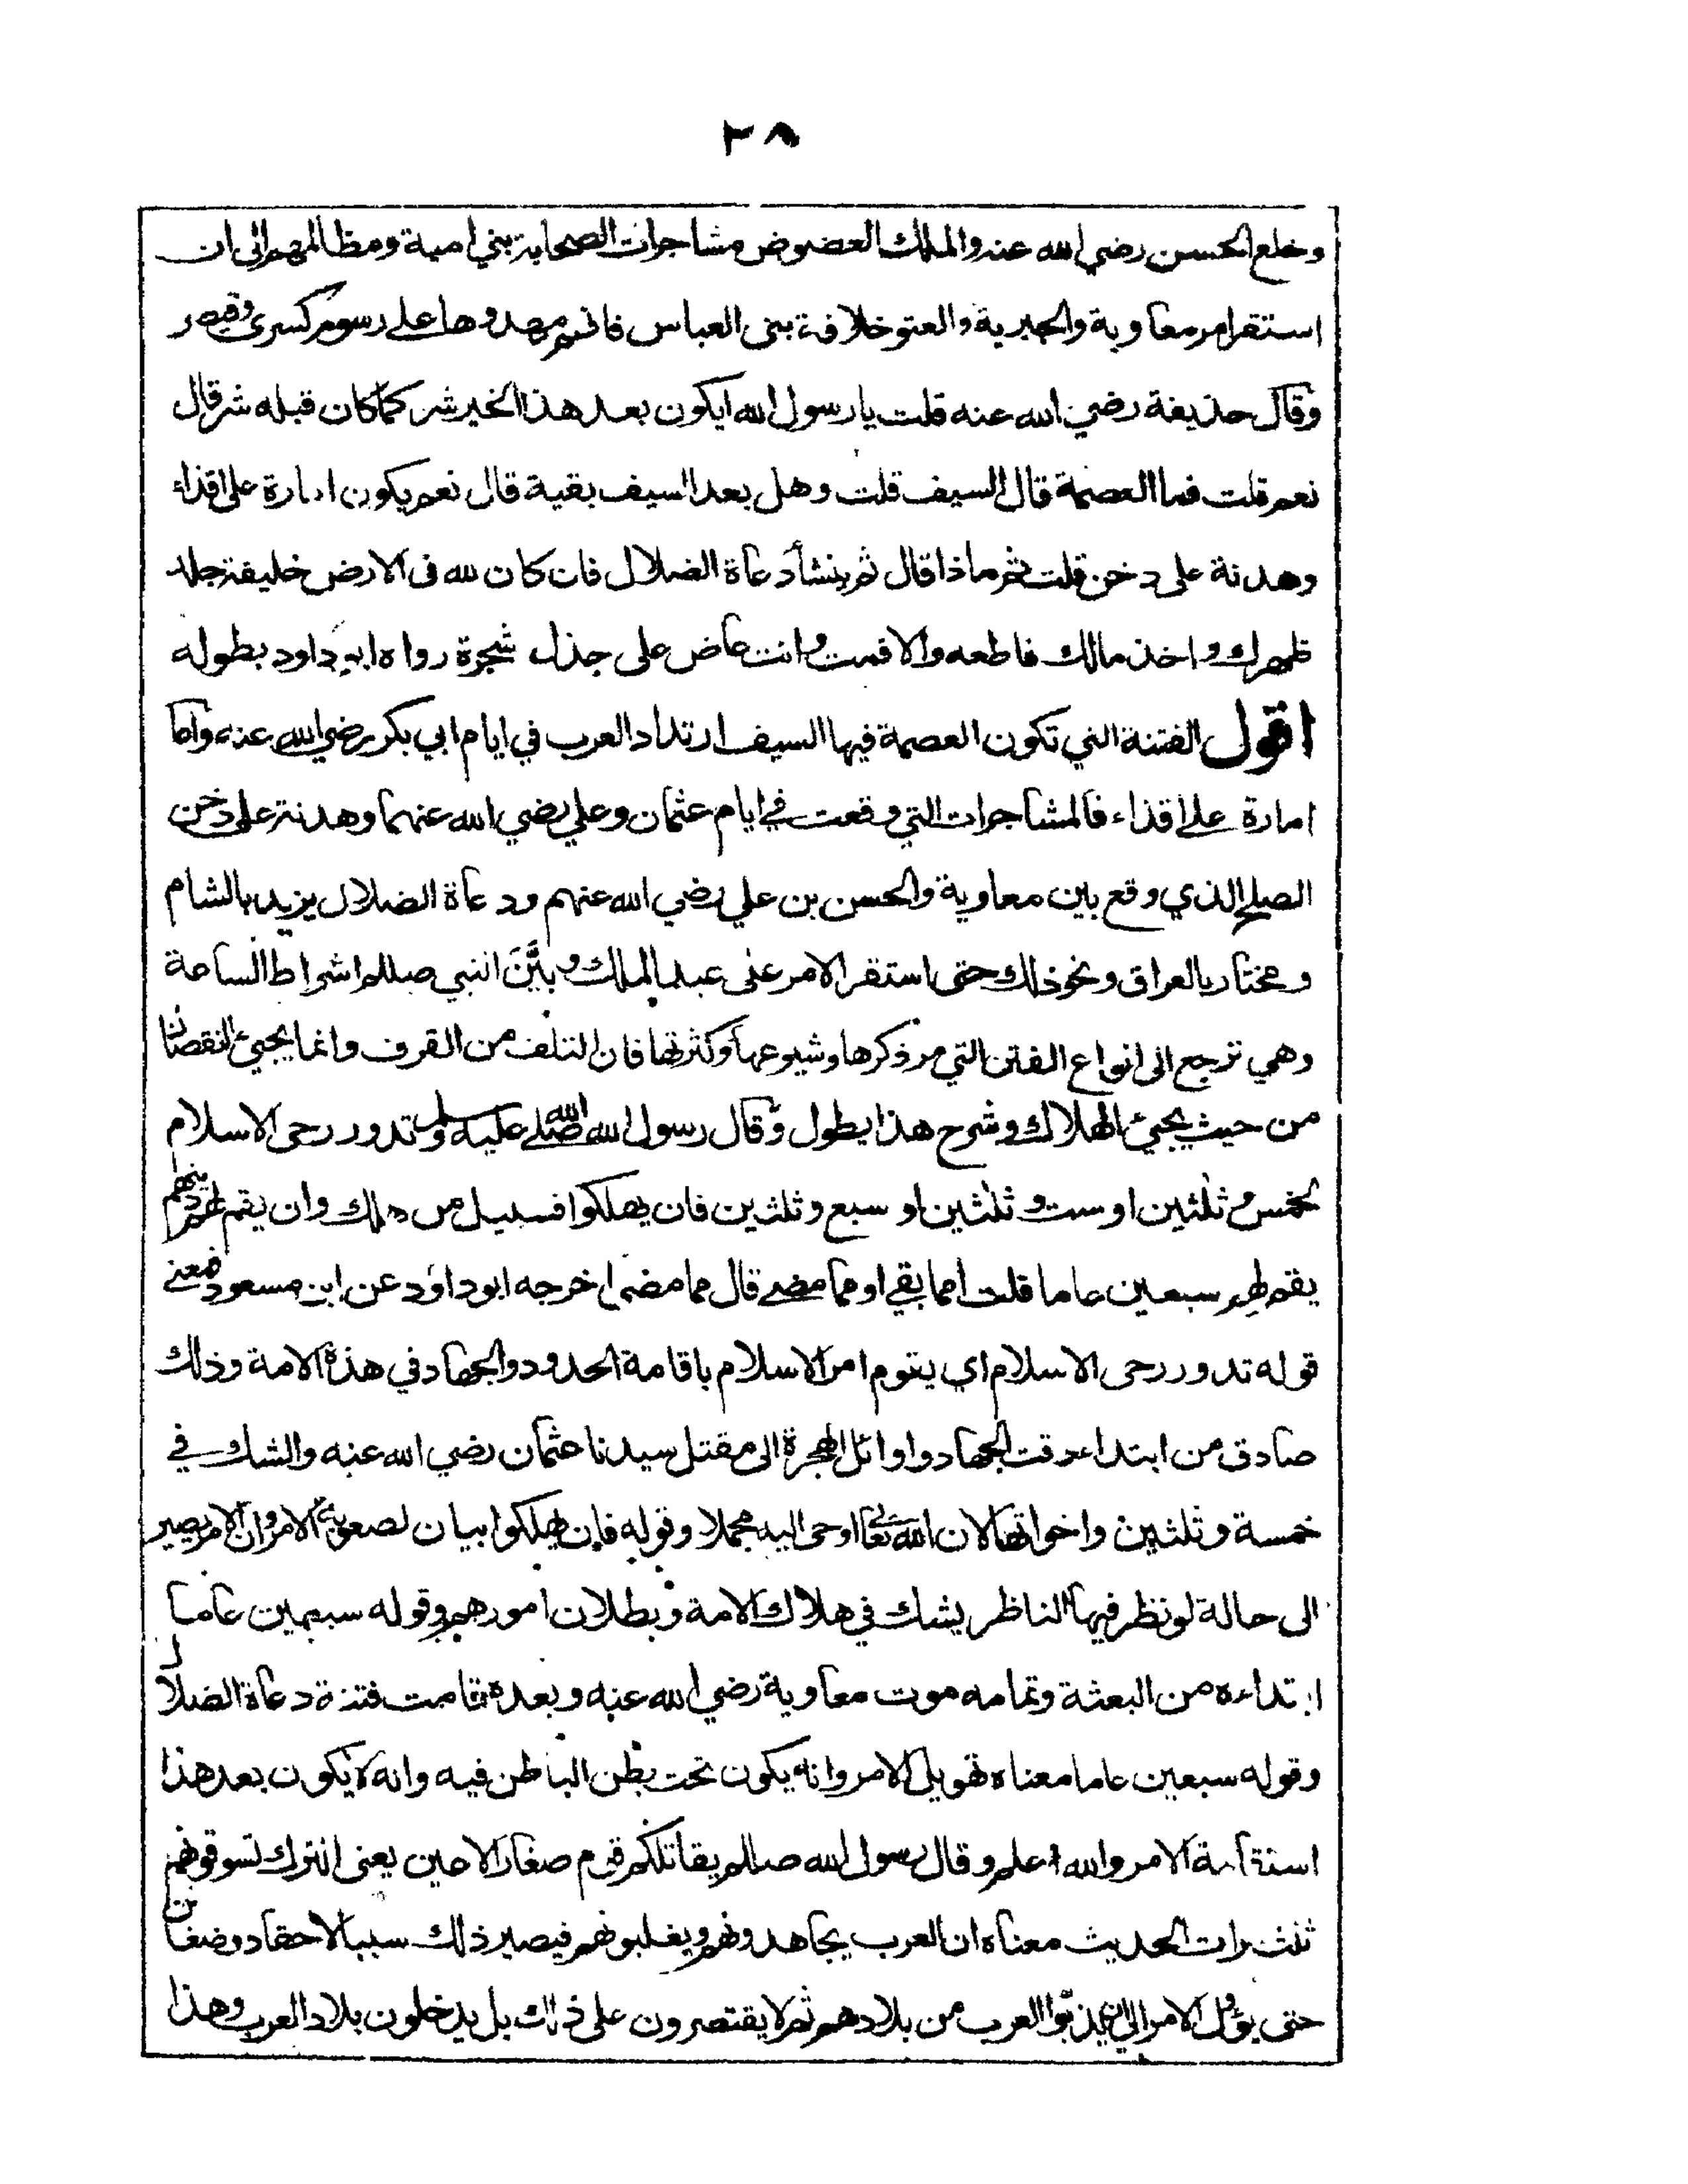 ٢٨
وخلع الحسن رضي الله عنه والملك العضوض مشاجرات الصحابة بني امية ومظالمهم الى ان
استقر امر معاوية والجبرية والعتو خلافة بنى العباس فانهم مهدوها على رسوم كسرى وقيصر
وقال حذيفة رضي الله عنه قلت يا رسول الله ايكون بعد هذا الخير شر كما كان قبله شر قال
نعم قلت فما العصمة قال السيف قلت وهل بعد السيف بقية قال نعم يكون امارة على اقذاء
وهدنة على دخن قلت ثم ماذا قال ثم ينشأ دعاة الضلال فان كان لله فى الارض خليفة جلد
ظهرك واخذ مالك فاطعه والا فمت وانت عاض على جذل شجرة رواه ابو داود بطوله
اقول الفتنة التي تكون العصمة فيها السيف ارتداد العرب في ايام ابي بكر رضي الله عنه واما
امارة على اقذاء فالمشاجرات التي وقعت في ايام عثمان وعلي رضي الله عنهما وهدنة على دخن
الصلح الذي وقع بين معاوية والحسن بن علي رضي الله عنهم ودعاة الضلال يزيد بالشام
ومختار بالعراق ونحو ذلك حتى استقر الامر على عبد الملك وبيَّنَ النبي صللم اشراط الساعة
وهي ترجع الى انواع الفتن التي مر ذكرها وشيوعها وكثرتها فان التلف من القرف وانما يجيئ النقصان
من حيث يجيئ الهلاك وشرح هذا يطول وقال رسول الله صلى الله عليه وسلم تدور رحى الاسلام
لخمس وثلثين او ست وثلثين او سبع وثلثين فان يهلكوا فسبيل من هلك وان يقم لهم دينهم
يقم لهم سبعين عاما قلت امما بقي او مما مضى قال مما مضى اخرجه ابو داود عن ابن مسعود فمعنى
قوله تدور رحى الاسلام اي يقوم امر الاسلام باقامة الحدود والجهاد في هذه الامة وذلك
صادق من ابتداء وقت الجهاد واوائل الهجرة الى مقتل سيدنا عثمان رضي الله عنه والشك في
خمسة وثلثين واخواتها لان الله تعالى اوحى اليه مجملا وقوله فان يهلكوا بيان لصعوبة الامر وان الامر يصير
الى حالة لو نظر فيها الناظر يشك في هلاك الامة وبطلان امورهم وقوله سبعين عاما
ابتداءه من البعثة وتمامه موت معاوية رضي الله عنه وبعده قامت فتنة دعاة الضلال
وقوله سبعين عاما معناه تهويل الامر وانه يكون تحت بطن الباطن فيه وانه لا يكون بعد هذا
استقامة الامر والله اعلم وقال رسول الله صللم يقاتلكم قوم صغار الاعين يعنى الترك تسوقونهم
ثلث مرات الحديث معناه ان العرب يجاهدونهم ويغلبونهم فيصير ذلك سببا لاحقاد وضغائن
حتى يؤل الامر الى ان يذبوا العرب من بلادهم ثم لا يقتصرون على ذلك بل يدخلون بلاد العرب وهذا